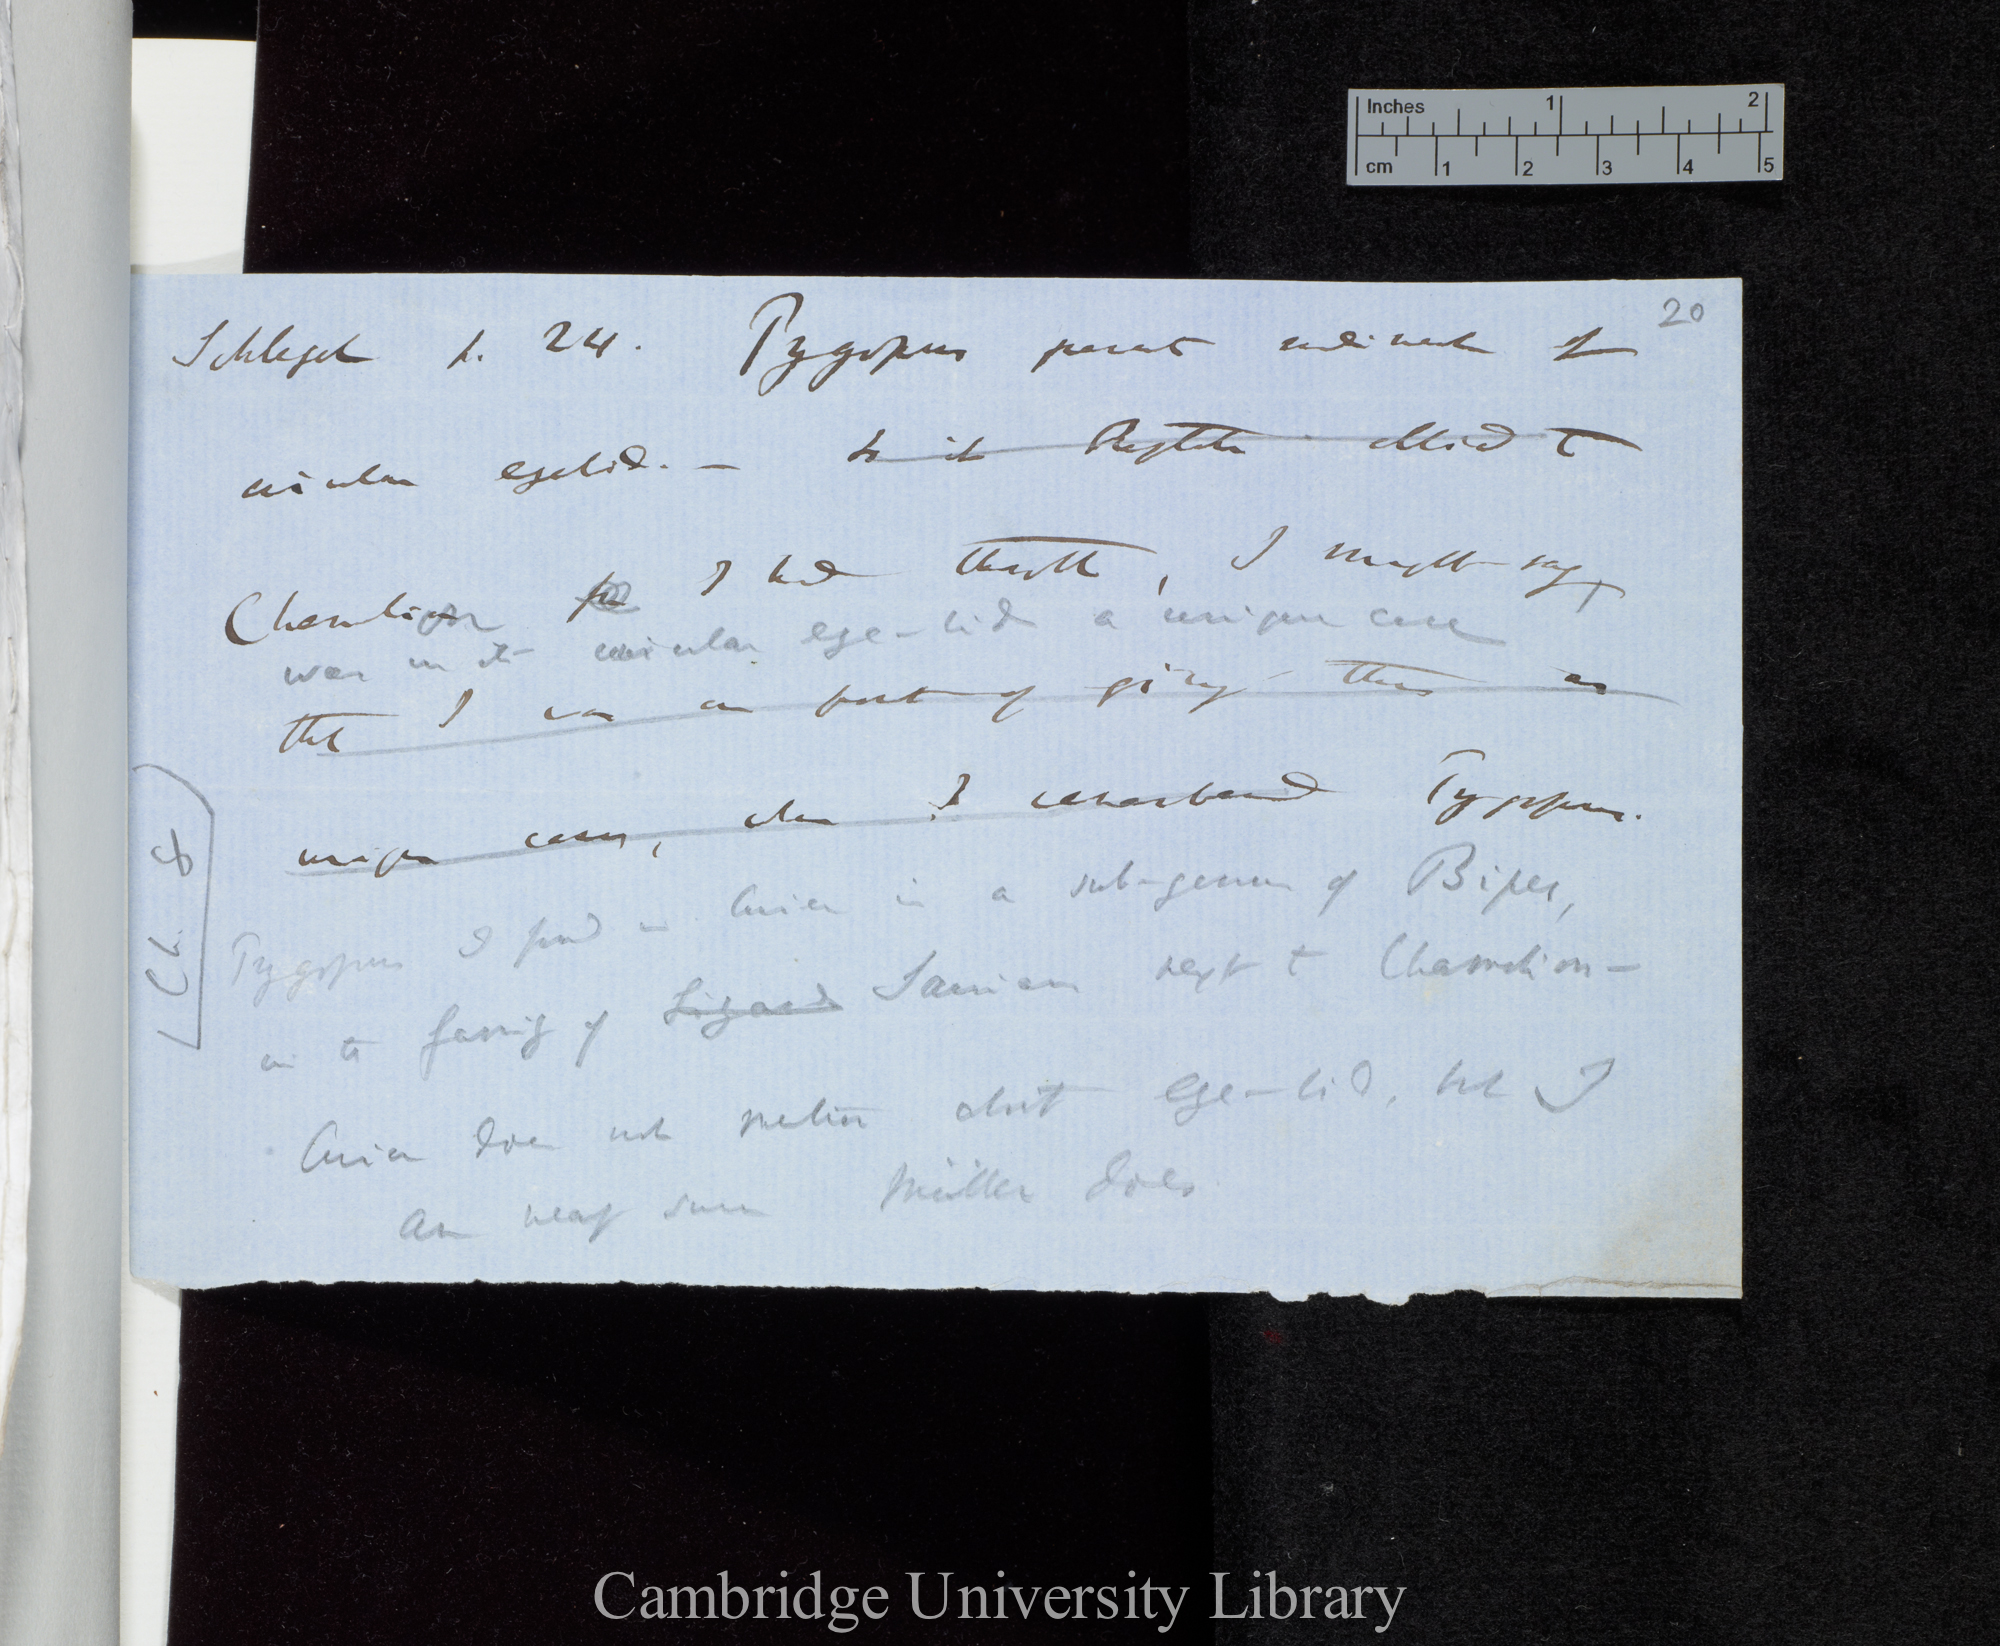 Inches 1 2
cm 1 2 3 4 5
20
Schlegel p. 24. Pygopus presents rudiment of
circular eyelid. — Is it Reptile allied to
Chameleon I had thought, I might say,
was in its circular eye-lid a unique case
that I was on point of giving this as
unique case, when I remembered Pygopus.
Pygopus I find in Cuvier is a sub-genus of Bipes,
in the family of Lizard Saurians next to Chameleon —
Cuvier does not mention about eye-lid, but I
am nearly sure Müller does
(Ch. 8)
Cambridge University Library